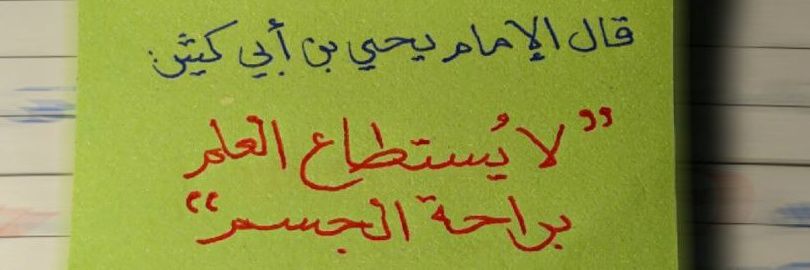 قال الإمام يحيي بن أبي كثير:
”لا يُستطاع العلم
براحة الجسم“